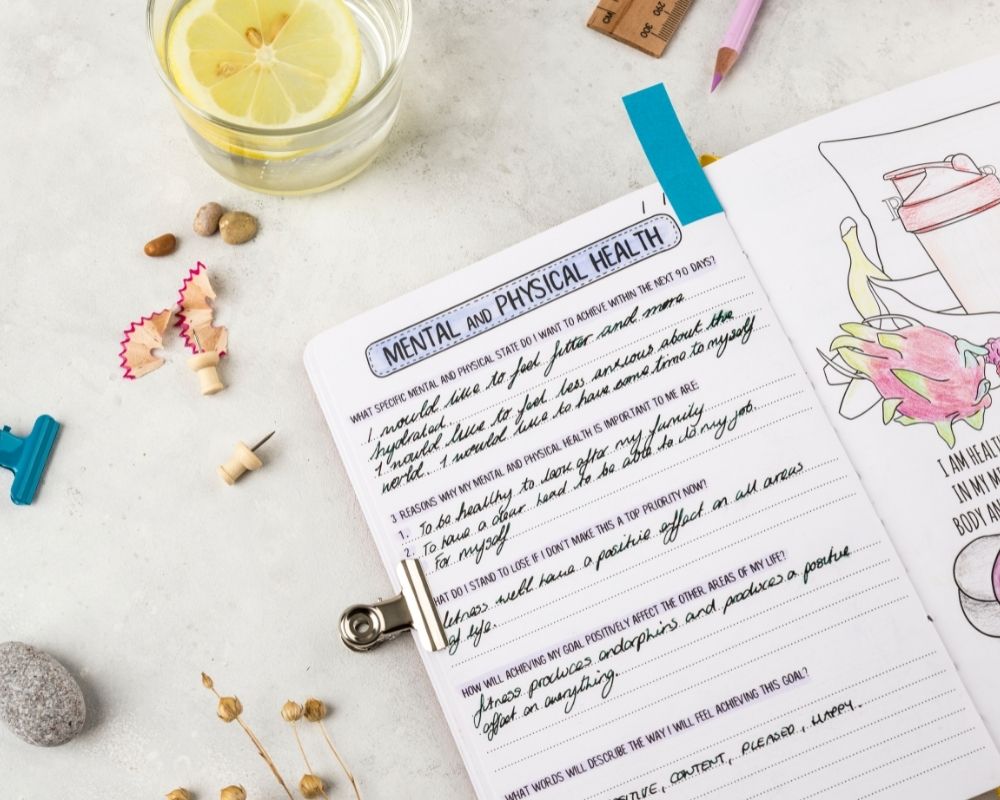 CM 290 300
MENTAL AND PHYSICAL HEALTH
WHAT SPECIFIC MENTAL AND PHYSICAL STATE DO I WANT TO ACHIEVE WITHIN THE NEXT 90 DAYS?
I would like to feel fitter and more
hydrated.
I would like to feel less anxious about the
world. I would like to have some time to myself
3 REASONS WHY MY MENTAL AND PHYSICAL HEALTH IS IMPORTANT TO ME ARE:
1. To be healthy to look after my family
2. To have a clear head to be able to do my job.
For myself
HAT DO I STAND TO LOSE IF I DON'T MAKE THIS A TOP PRIORITY NOW?
fitness will have a positive effect on all areas
of life.
HOW WILL ACHIEVING MY GOAL POSITIVELY AFFECT THE OTHER AREAS OF MY LIFE?
fitness produces endorphins and produces a positive
effect on everything.
WHAT WORDS WILL DESCRIBE THE WAY I WILL FEEL ACHIEVING THIS GOAL?
SITIVE, CONTENT, PLEASED, HAPPY.
I AM HEALTH
IN MY M
BODY AN